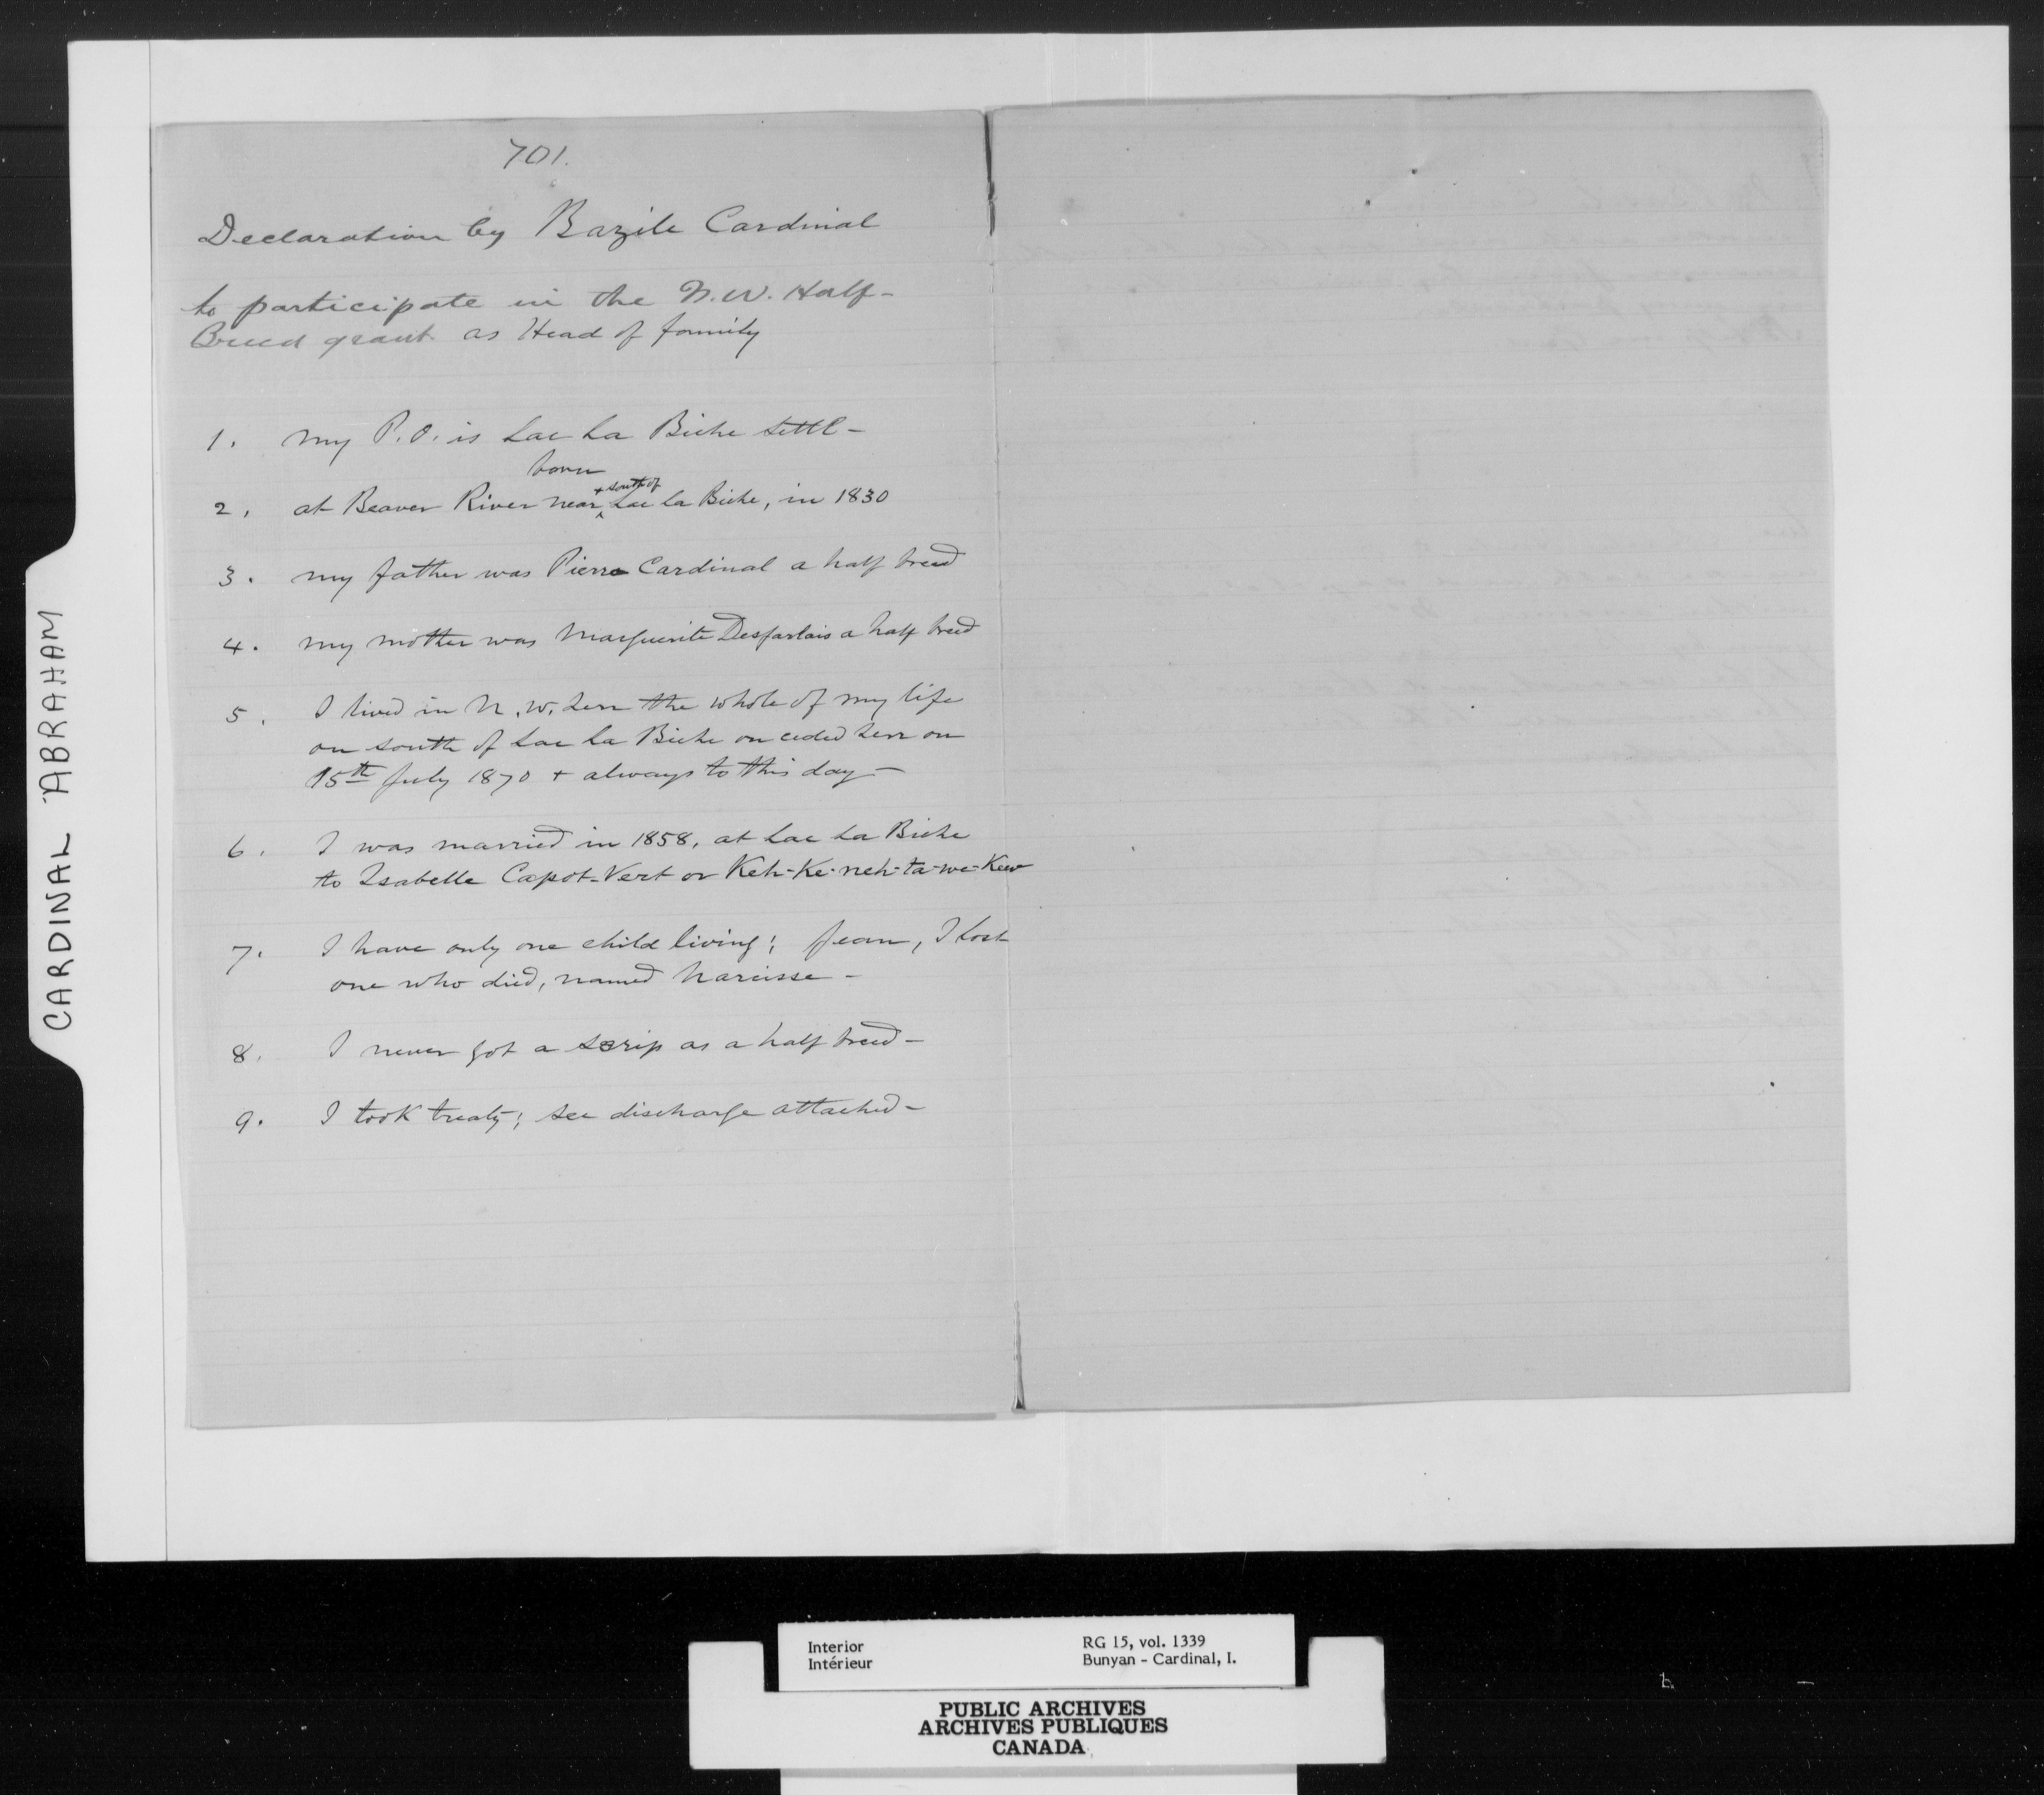 701.
Declaration by Bazile Cardinal
to participate in the N.W. Half-
Breed grant as Head of family
1. my P.O. is Lac La Biche settl-
born
+ south of
2. at Beaver River near Lac la Biche, in 1830
3. my father was Pierre Cardinal a half breed
4. my mother was Marguerite Desjarlais a half breed
5. I lived in N.W. Terr the whole of my life
on south of Lac La Biche on ceded Terr on
15th July 1870 + always to this day-
6. I was married in 1858, at Lac La Biche
to Isabelle Capot-Vert or Keh-Ke-neh-ta-we-Kew
7. I have only one child living; Jean, I lost
one who died, named Narcisse-
8. I never got a scrip as a half breed-
9. I took treaty; see discharge attached-
CARDINAL ABRAHAM
Interior
Intérieur
RG 15, vol. 1339
Bunyan - Cardinal, I.
PUBLIC ARCHIVES
ARCHIVES PUBLIQUES
CANADA